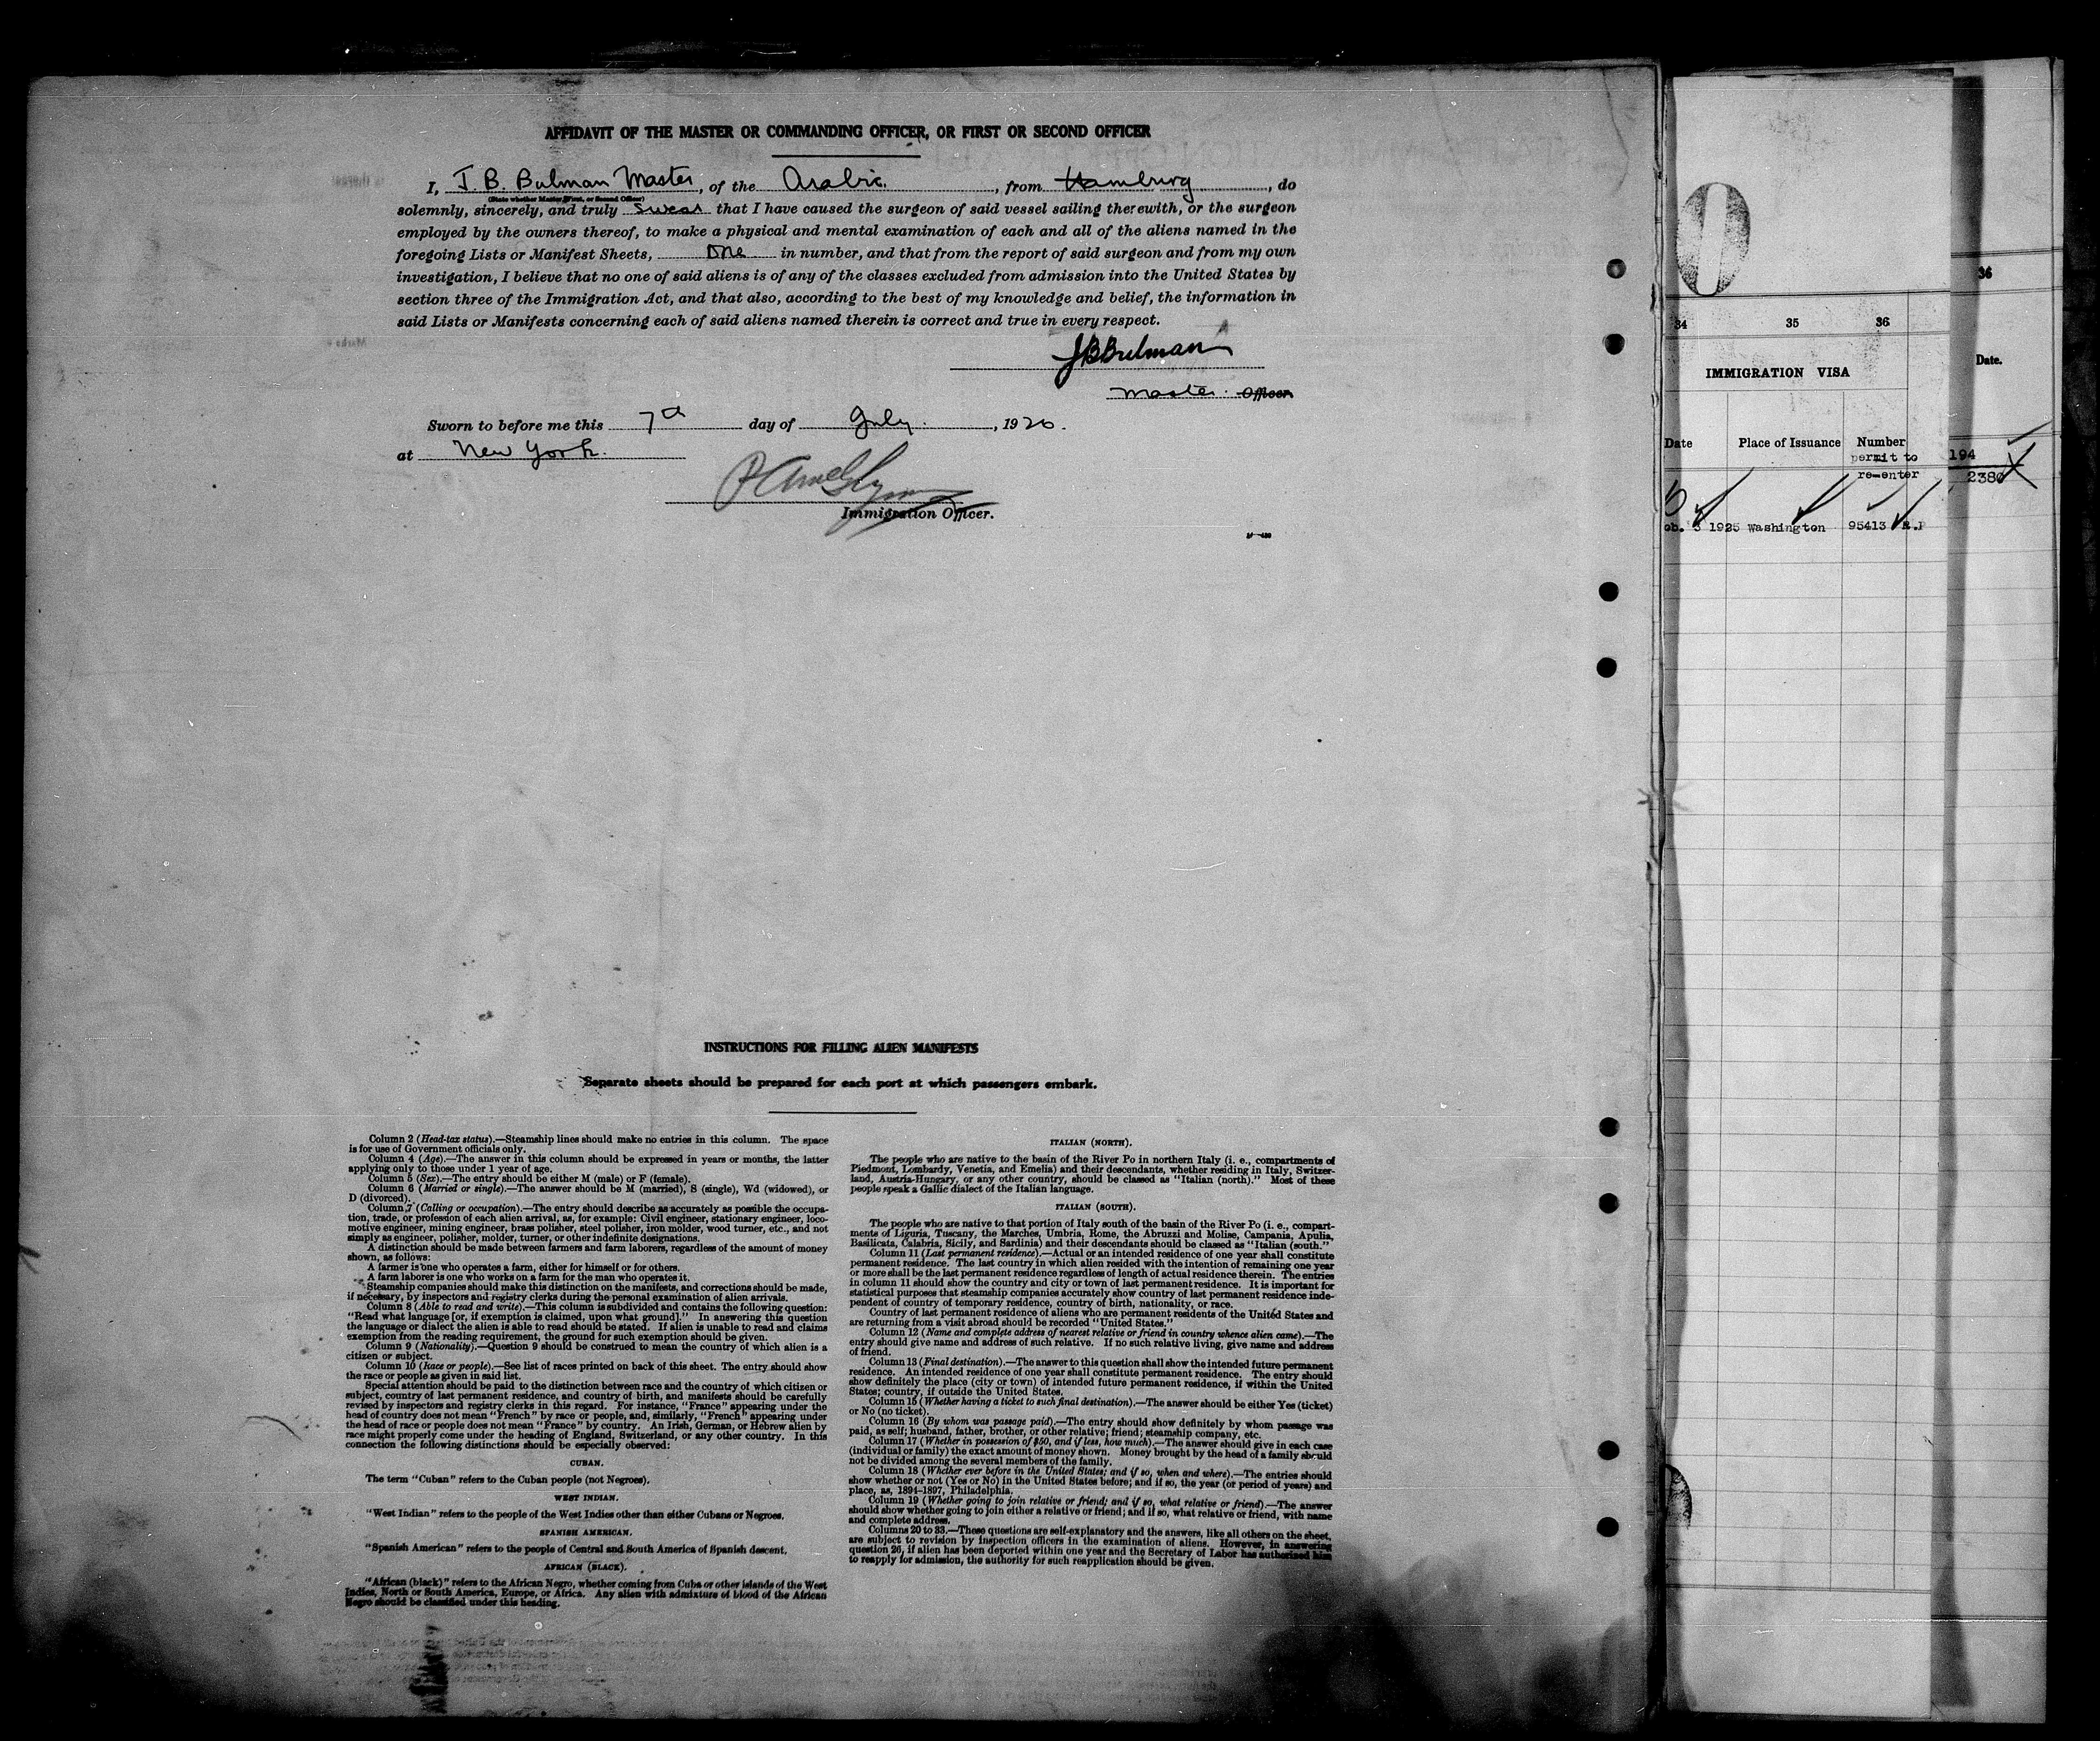 AFFIDAVIT OF THE MASTER OR COMMANDING OFFICER, OR FIRST OR SECOND OFFICER
I, J. B. Bulman Master, of the Arabic, from Hamburg, do
(State whether Master, First, or Second Officer)
solemnly, sincerely, and truly swear that I have caused the surgeon of said vessel sailing therewith, or the surgeon
employed by the owners thereof, to make a physical and mental examination of each and all of the aliens named in the
foregoing Lists or Manifest Sheets, One in number, and that from the report of said surgeon and from my own
investigation, I believe that no one of said aliens is of any of the classes excluded from admission into the United States by
section three of the Immigration Act, and that also, according to the best of my knowledge and belief, the information in
said Lists or Manifests concerning each of said aliens named therein is correct and true in every respect.
JBBulman
Master. Officer.
Sworn to before me this 7th day of July., 1926.
at New York.
Immigration Officer.
INSTRUCTIONS FOR FILLING ALIEN MANIFESTS
Separate sheets should be prepared for each port at which passengers embark.
Column 2 (Head-tax status).—Steamship lines should make no entries in this column. The space
is for use of Government officials only.
Column 4 (Age).—The answer in this column should be expressed in years or months, the latter
applying only to those under 1 year of age.
Column 5 (Sex).—The entry should be either M (male) or F (female).
Column 6 (Married or single).—The answer should be M (married), S (single), Wd (widowed), or
D (divorced).
Column 7 (Calling or occupation).—The entry should describe as accurately as possible the occupa-
tion, trade, or profession of each alien arrival, as, for example: Civil engineer, stationary engineer, loco-
motive engineer, mining engineer, brass polisher, steel polisher, iron molder, wood turner, etc., and not
simply as engineer, polisher, molder, turner, or other indefinite designations.
A distinction should be made between farmers and farm laborers, regardless of the amount of money
shown, as follows:
A farmer is one who operates a farm, either for himself or for others.
A farm laborer is one who works on a farm for the man who operates it.
Steamship companies should make this distinction on the manifests, and corrections should be made,
if necessary, by inspectors and registry clerks during the personal examination of alien arrivals.
Column 8 (Able to read and write).—This column is subdivided and contains the following question:
"Read what language [or, if exemption is claimed, upon what ground]." In answering this question
the language or dialect the alien is able to read should be stated. If alien is unable to read and claims
exemption from the reading requirement, the ground for such exemption should be given.
Column 9 (Nationality).—Question 9 should be construed to mean the country of which alien is a
citizen or subject.
Column 10 (Race or people).—See list of races printed on back of this sheet. The entry should show
the race or people as given in said list.
Special attention should be paid to the distinction between race and the country of which citizen or
subject, country of last permanent residence, and country of birth, and manifests should be carefully
revised by inspectors and registry clerks in this regard. For instance, "France" appearing under the
head of country does not mean "French" by race or people, and, similarly, "French" appearing under
the head of race or people does not mean "France" by country. An Irish, German, or Hebrew alien by
race might properly come under the heading of England, Switzerland, or any other country. In this
connection the following distinctions should be especially observed:
CUBAN.
The term "Cuban" refers to the Cuban people (not Negroes).
WEST INDIAN.
"West Indian" refers to the people of the West Indies other than either Cubans or Negroes.
SPANISH AMERICAN.
"Spanish American" refers to the people of Central and South America of Spanish descent.
AFRICAN (BLACK).
"African (black)" refers to the African Negro, whether coming from Cuba or other islands of the West
Indies, North or South America, Europe, or Africa. Any alien with admixture of blood of the African
Negro should be classified under this heading.
ITALIAN (NORTH).
The people who are native to the basin of the River Po in northern Italy (i. e., compartments of
Piedmont, Lombardy, Venetia, and Emelia) and their descendants, whether residing in Italy, Switzer-
land, Austria-Hungary, or any other country, should be classed as "Italian (north)." Most of these
people speak a Gallic dialect of the Italian language.
ITALIAN (SOUTH).
The people who are native to that portion of Italy south of the basin of the River Po (i. e., compart-
ments of Liguria, Tuscany, the Marches, Umbria, Rome, the Abruzzi and Molise, Campania, Apulia,
Basilicata, Calabria, Sicily, and Sardinia) and their descendants should be classed as "Italian (south."
Column 11 (Last permanent residence).—Actual or an intended residence of one year shall constitute
permanent residence. The last country in which alien resided with the intention of remaining one year
or more shall be the last permanent residence regardless of length of actual residence therein. The entries
in column 11 should show the country and city or town of last permanent residence. It is important for
statistical purposes that steamship companies accurately show country of last permanent residence inde-
pendent of country of temporary residence, country of birth, nationality, or race.
Country of last permanent residence of aliens who are permanent residents of the United States and
are returning from a visit abroad should be recorded "United States."
Column 12 (Name and complete address of nearest relative or friend in country whence alien came).—The
entry should give name and address of such relative. If no such relative living, give name and address
of friend.
Column 13 (Final destination).—The answer to this question shall show the intended future permanent
residence. An intended residence of one year shall constitute permanent residence. The entry should
show definitely the place (city or town) of intended future permanent residence, if within the United
States; country, if outside the United States.
Column 15 (Whether having a ticket to such final destination).—The answer should be either Yes (ticket)
or No (no ticket).
Column 16 (By whom was passage paid).—The entry should show definitely by whom passage was
paid, as self; husband, father, brother, or other relative; friend; steamship company, etc.
Column 17 (Whether in possession of $50, and if less, how much).—The answer should give in each case
(individual or family) the exact amount of money shown. Money brought by the head of a family should
not be divided among the several members of the family.
Column 18 (Whether ever before in the United States; and if so, when and where).—The entries should
show whether or not (Yes or No) in the United States before; and if so, the year (or period of years) and
place, as, 1894-1897, Philadelphia.
Column 19 (Whether going to join relative or friend; and if so, what relative or friend).—The answer
should show whether going to join either a relative or friend; and if so, what relative or friend, with name
and complete address.
Columns 20 to 33.—These questions are self-explanatory and the answers, like all others on the sheet,
are subject to revision by inspection officers in the examination of aliens. However, in answering
question 26, if alien has been deported within one year and the Secretary of Labor has authorized him
to reapply for admission, the authority for such reapplication should be given.
34 35 36
IMMIGRATION VISA
Date Place of Issuance Number
permit to
re-enter
eb. 3 1925 Washington 95413 R.P
36
Date.
194